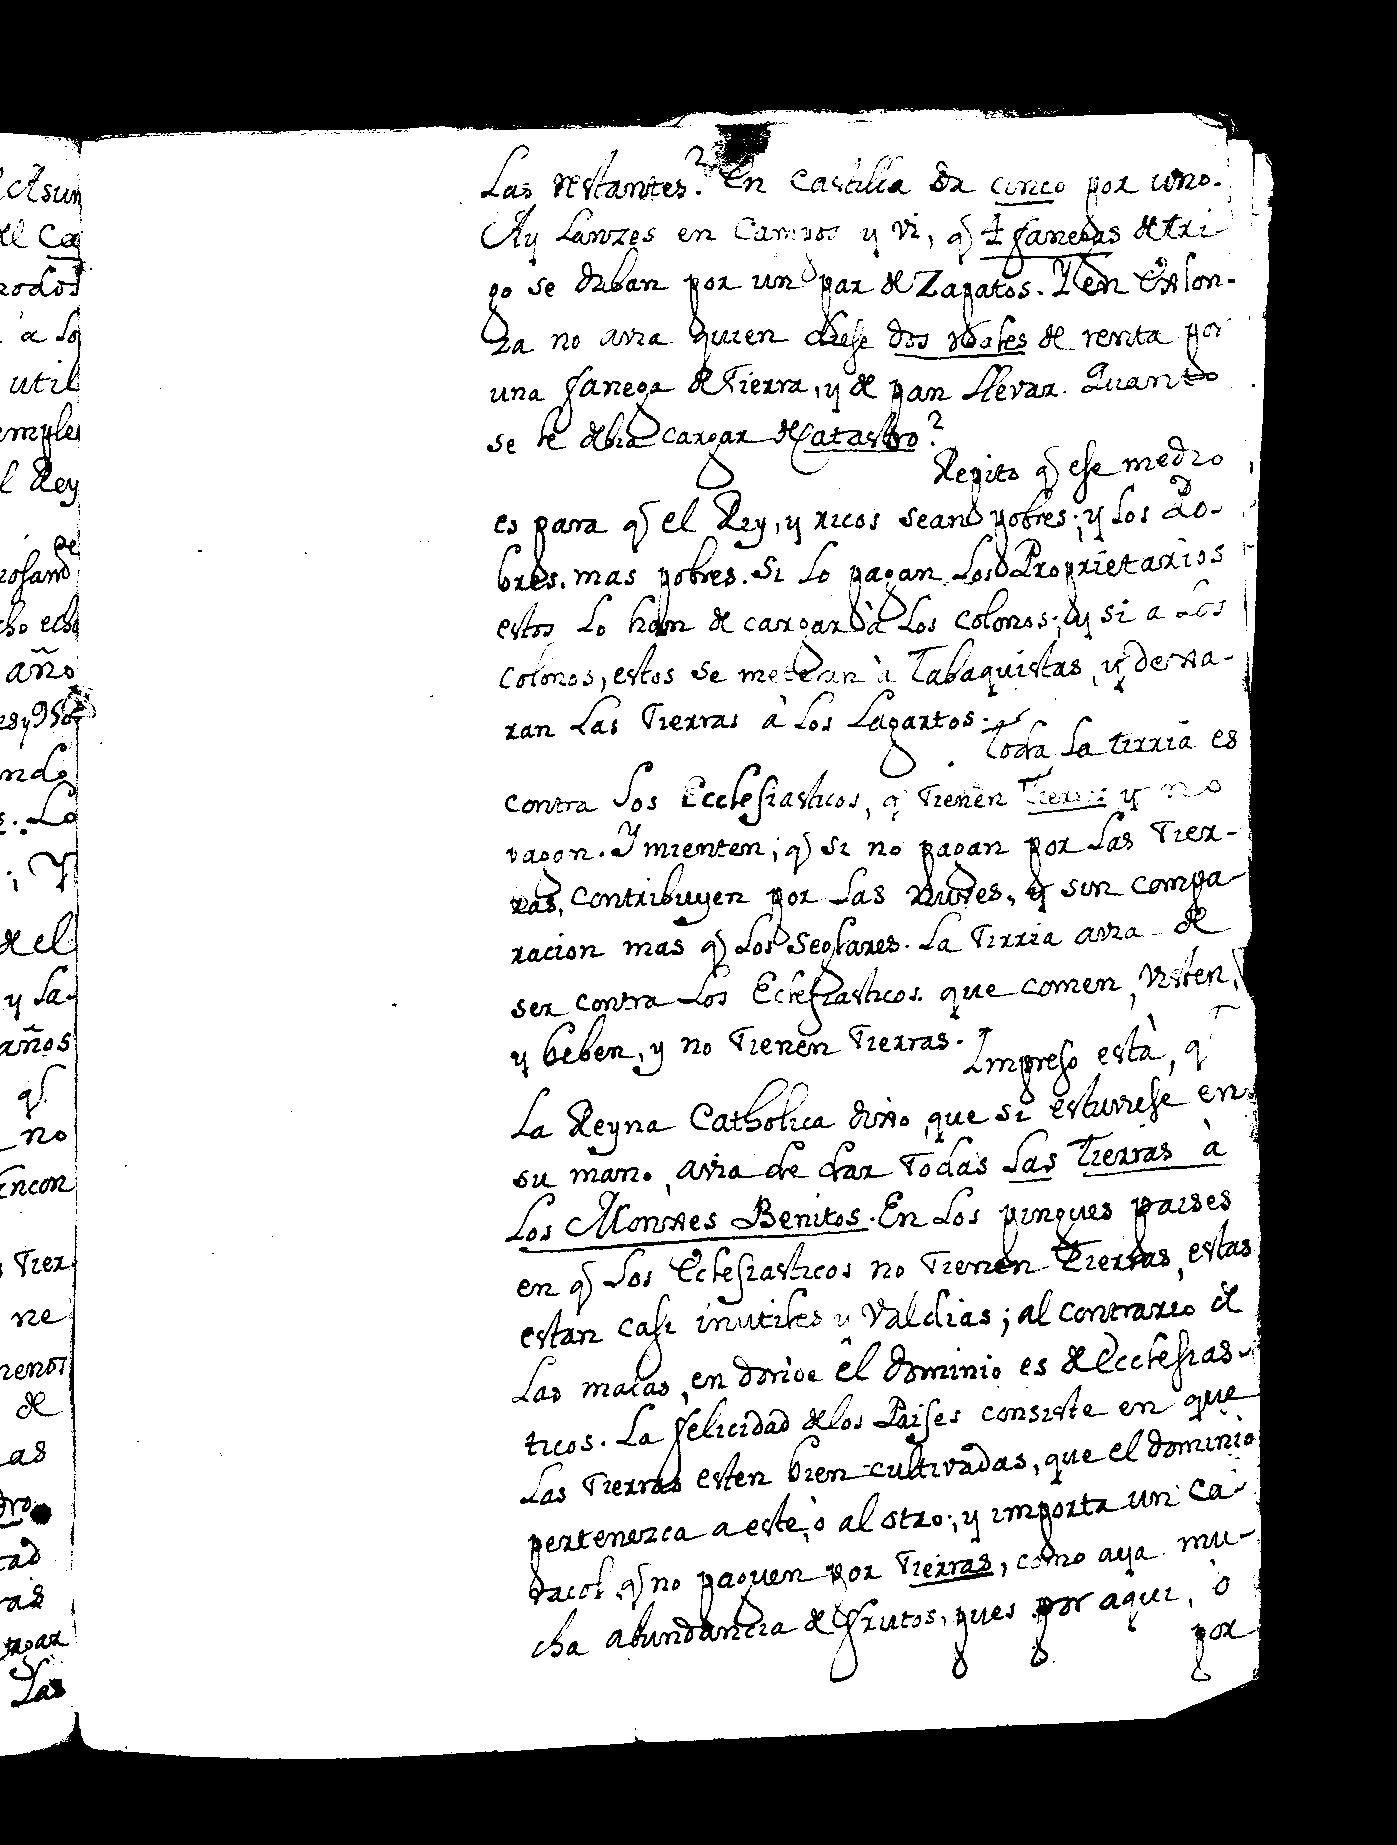 Asun
del Ca
rodos
a lo
util
emple
l Rey
rosand
cho echo
año
ndo
s. Lo
; Y
de el
y la-
años
q̃
no
encon
Tier
ne
menos
de
as
dro
tad
ras
rgar
Las
Las restantes? En Castilla da cinco por uno.
Ay lanzes en Campos y vi, q̃ 4 fanegas de tri
go se daban por un par de Zapatos. Y en Exlon-
za no avia quien diese dos reales de renta por
una fanega de Tierra, y de pan llevar. Quanto
se le debia cargar de Catastro?
Repito q̃ ese medio
es para q̃ el Rey, y ricos sean pobres; y los Po-
bres, mas pobres. Si lo pagan los Proprietarios
estos lo han de cargar à los colonos; y si a los
colonos, estos se meteran à Tabaquistas, y dexa-
ran las Tierras à los Lagartos.
Toda la tirria es
contra los Ecclesiasticos, q̃ tienen Tierras y no
pagan. Y mienten; q̃ si no pagan por las Tier-
ras, contribuyen por las nubes, y sin compa-
racion mas q̃ los Seglares. La Tirria avia de
ser contra los Eclesiasticos que comen, visten,
y beben, y no tienen Tierras.
Impreso està, q̃
la Reyna Catholica dixo, que si estuviese en
su mano, avia de dar todas las Tierras à
los Monges Benitos. En los pingues paises
en q̃ los Eclesiasticos no tienen Tierras, estas
estan casi inutiles y valdias; al contrario de
las malas, en donde el dominio es de Ecclesias-
ticos. La felicidad de los Paises consiste en que
las Tierras esten bien cultivadas, que el dominio
pertenezca a este, ò al otro; y importa un ca-
racol q̃ no paguen por Tierras, como aya mu-
cha abundancia de frutos, pues por aqui, ò
por